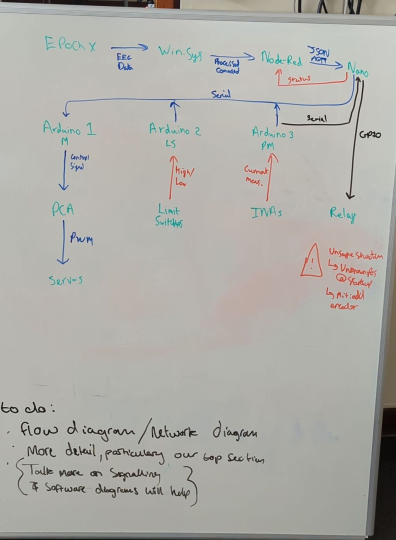 EPOCH X
EEG
Data
Win-Sys
Processed
Command
Node-Red
JSON
status
Nano
Serial
Arduino 1
M
Arduino 2
LS
Arduino 3
PM
Serial
GPIO
Control
Signal
High/
Low
Current
meas.
PCA
Limit
Switches
INAs
Relay
PWM
Servos
!
Unsafe situation
↳ Unknown pos
@ Startup
↳ Mit: add
encoder
to do:
. flow diagram/Network diagram
. More detail, particulary our top section
. {Talk more on Signalling
& Software diagrams will help}